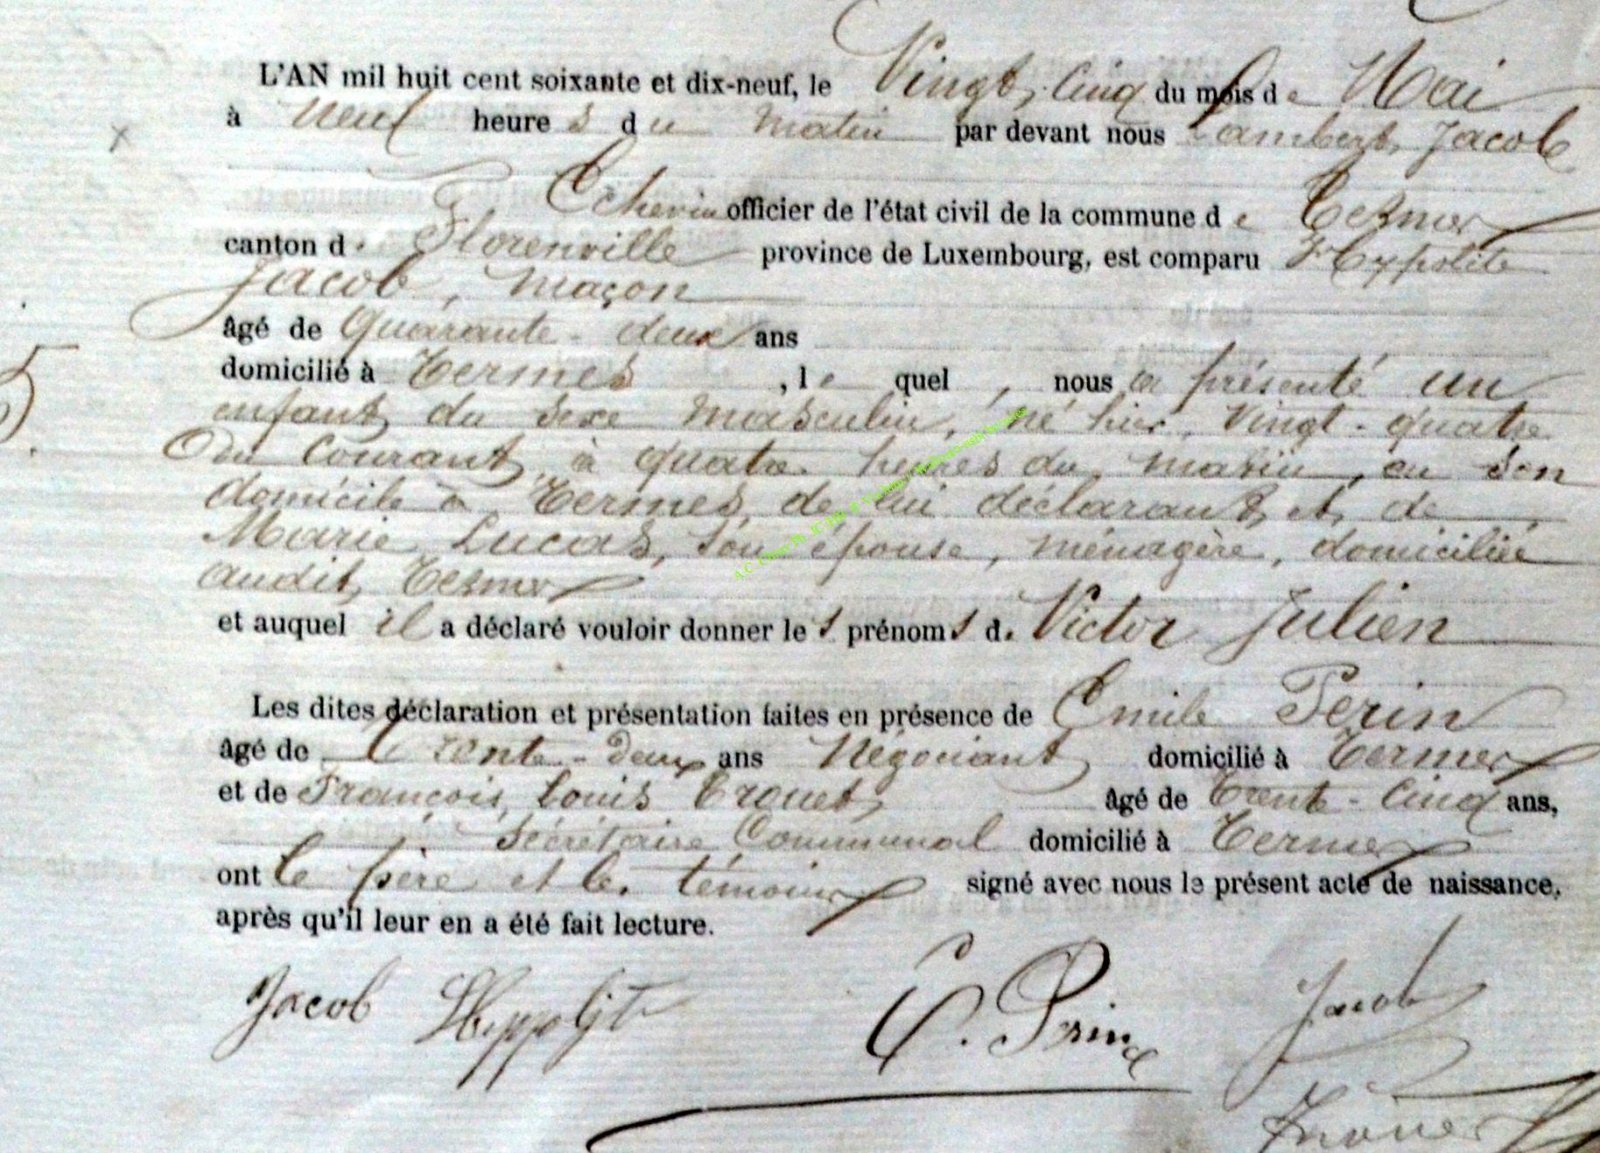 L'AN mil huit cent soixante et dix-neuf, le Vingt, Cinq du mois de Mai
à neuf heures du matin par devant nous Lambert, Jacob
Echevin officier de l'état civil de la commune de Termes
canton de Florenville province de Luxembourg, est comparu Hypolite
Jacob, maçon
âgé de Quarante-deux ans
domicilié à Termes, le quel, nous a présenté un
enfant du sexe masculin, né hier, Vingt-quatre
du Courant, à quatre heures du matin, en son
domicile à Termes, de lui déclarant, et, de
Marie Lucas, son épouse, ménagère, domiciliée
audit, Termes
et auquel il a déclaré vouloir donner les prénoms de Victor Julien
Les dites déclaration et présentation faites en présence de Emile Perin
âgé de trente-deux ans Négociant domicilié à Termes
et de François, Louis âgé de Trente-Cinq ans,
Secrétaire Communal domicilié à Termes
ont le père et les témoins signé avec nous le présent acte de naissance,
après qu'il leur en a été fait lecture.
Jacob Hippolyte E. Perin Jacob